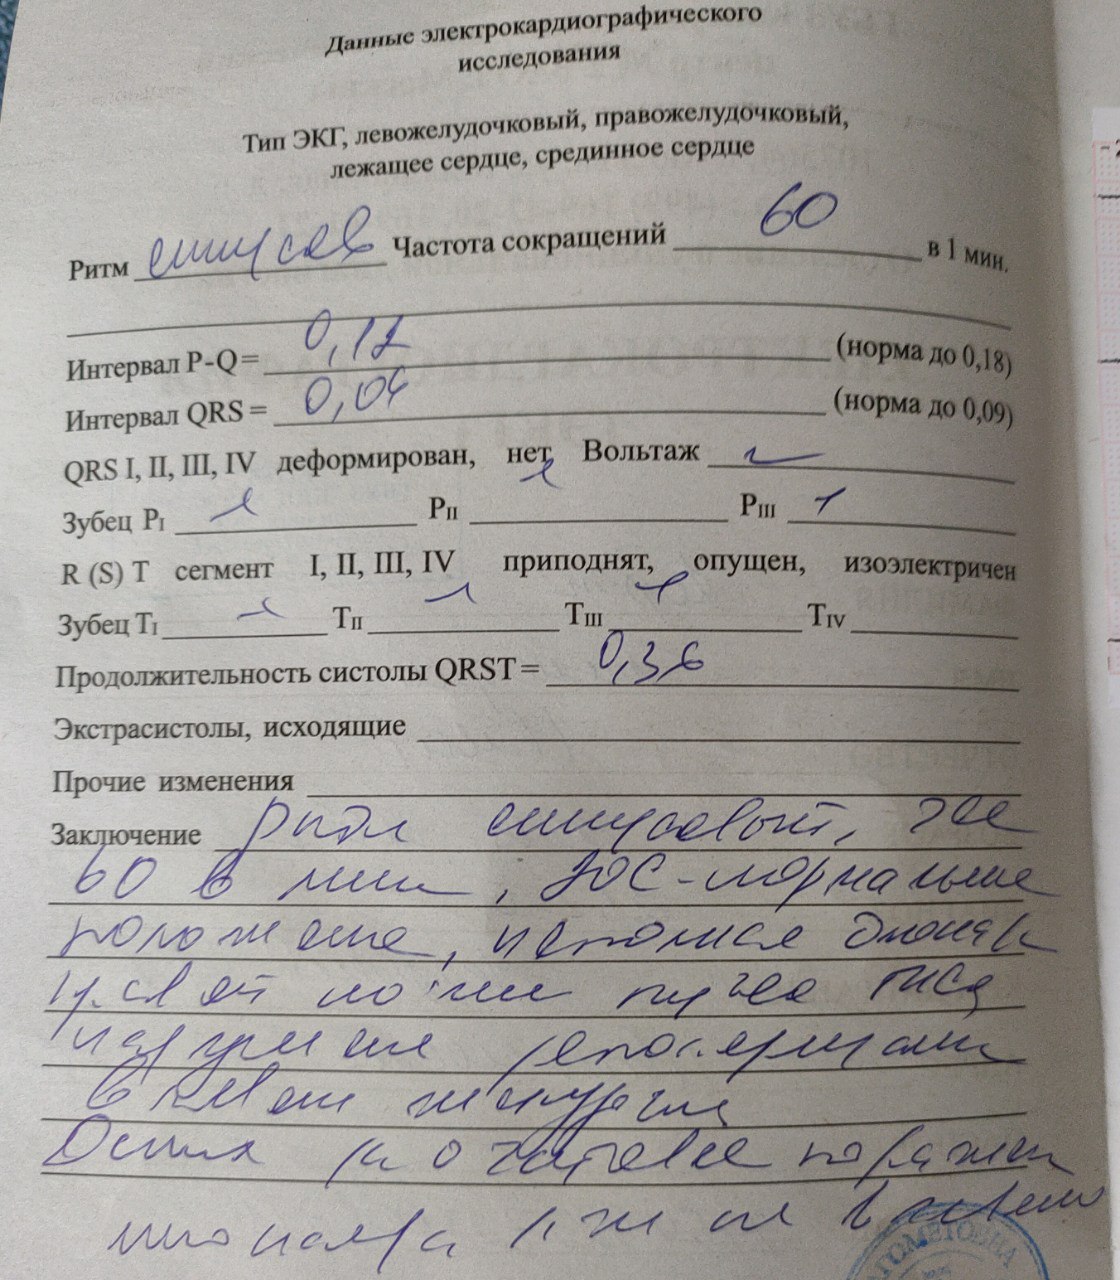 Данные электрокардиографического
исследования
Тип ЭКГ, левожелудочковый, правожелудочковый,
лежащее сердце, срединное сердце
Ритм синусов Частота сокращений 60 в 1 мин.
Интервал P-Q = 0,12 (норма до 0,18)
Интервал QRS = 0,04 (норма до 0,09)
QRS I, II, III, IV деформирован, нет Вольтаж
Зубец PI PII PIII
R (S) T сегмент I, II, III, IV приподнят, опущен, изоэлектричен
Зубец TI TII TIII TIV
Продолжительность систолы QRST = 0,36
Экстрасистолы, исходящие
Прочие изменения
Заключение ритм синусовый, чсс
60 в мин, ЭОС - нормальные
положение, неполная блокада
правой ножки пучка Гиса
нарушение реполяризации
в левом желудочке
миокарда